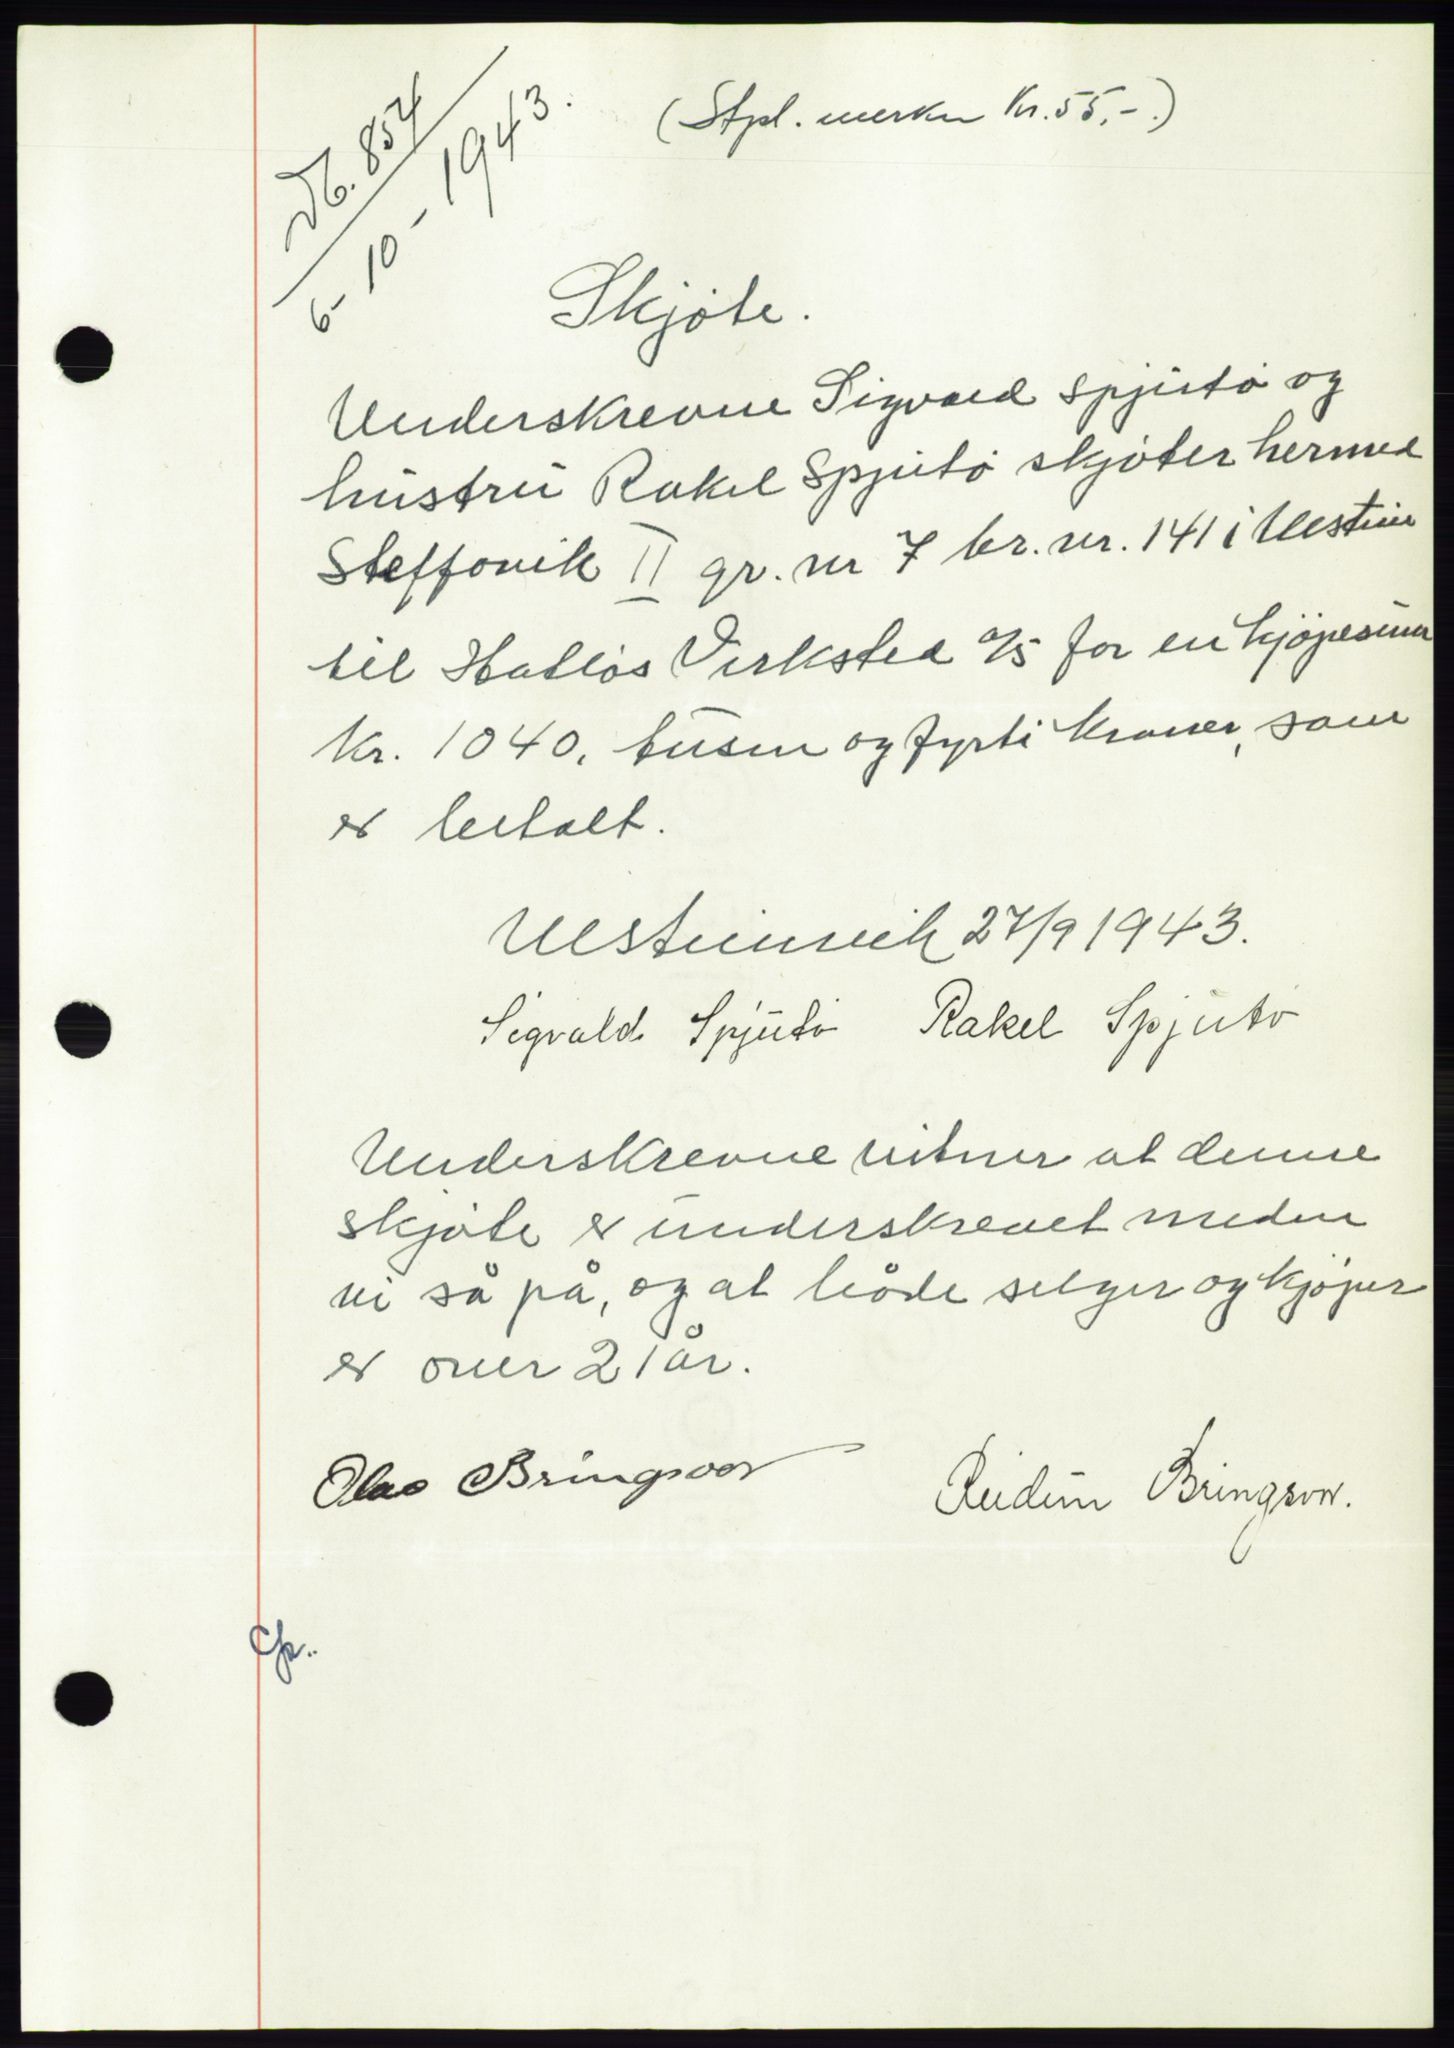 (Stpl. merker Kr. 55,-.)
Nb. 854
6-10-1943.
Skjöte.
Underskrevne Sigvald Spjutö og
hustru Rakel Spjutö skjöter hermed
Steffonik II gr. nr 7 br. nr. 141 i Ulstein
til Hatlos Verksted a/s for en kjöpesum
kr. 1040, tusen og fyrti kroner, som
er betalt.
Ulsteinvik 27/9 1943.
Sigvald Spjutö Rakel Spjutö
Underskrevne vitner at denne
skjöte er underskrevet meden
vi så på, og at både selger og kjöper
er over 21 år.
Olav Bringsvor Reidun Bringsvor.